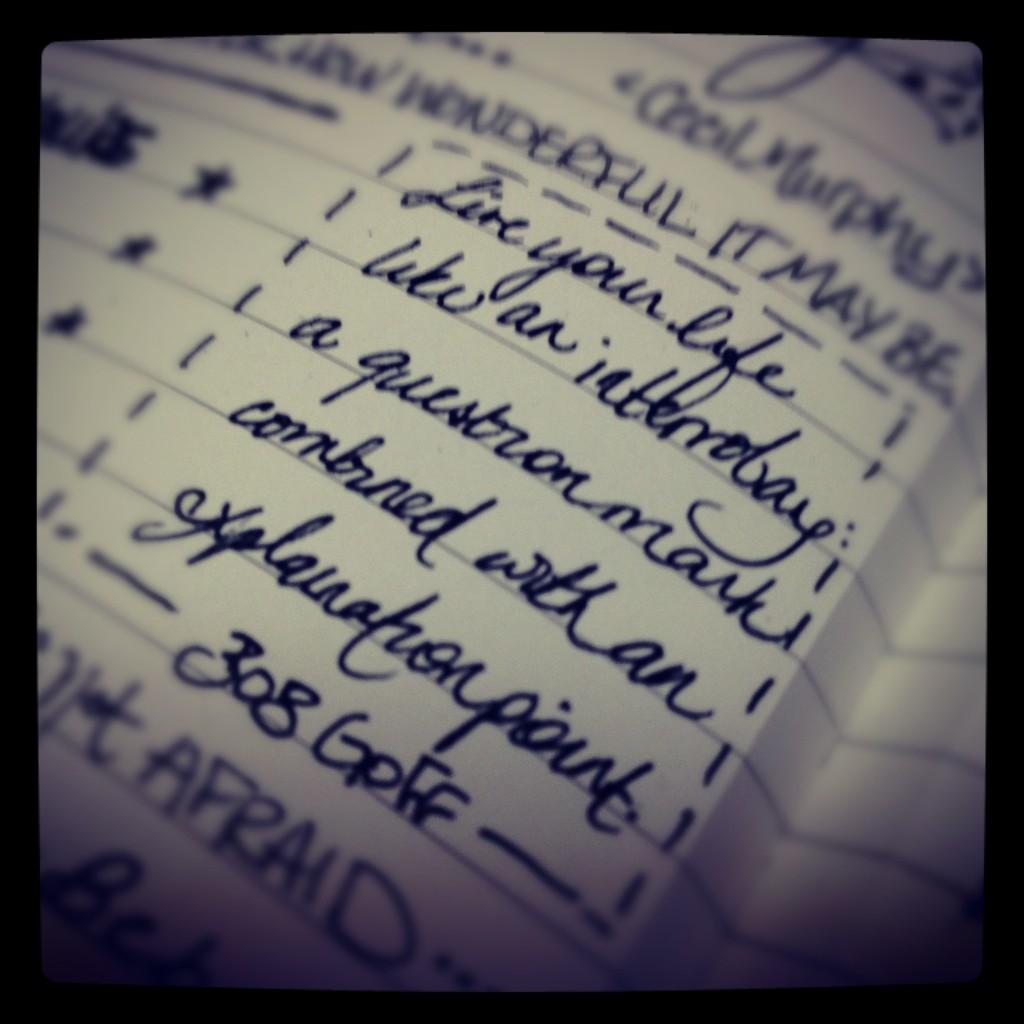 <Cecil Murphy>
HOW WONDERFUL IT MAY BE.
Live your life
like an interrobang:
a question mark
combined with an
explanation point.
308 GPFF
AFRAID...